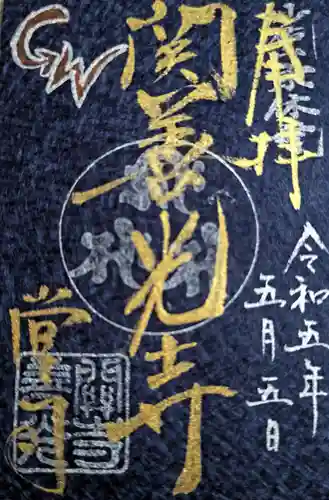 奉拝
令和五年
五月五日
関善光寺
GW